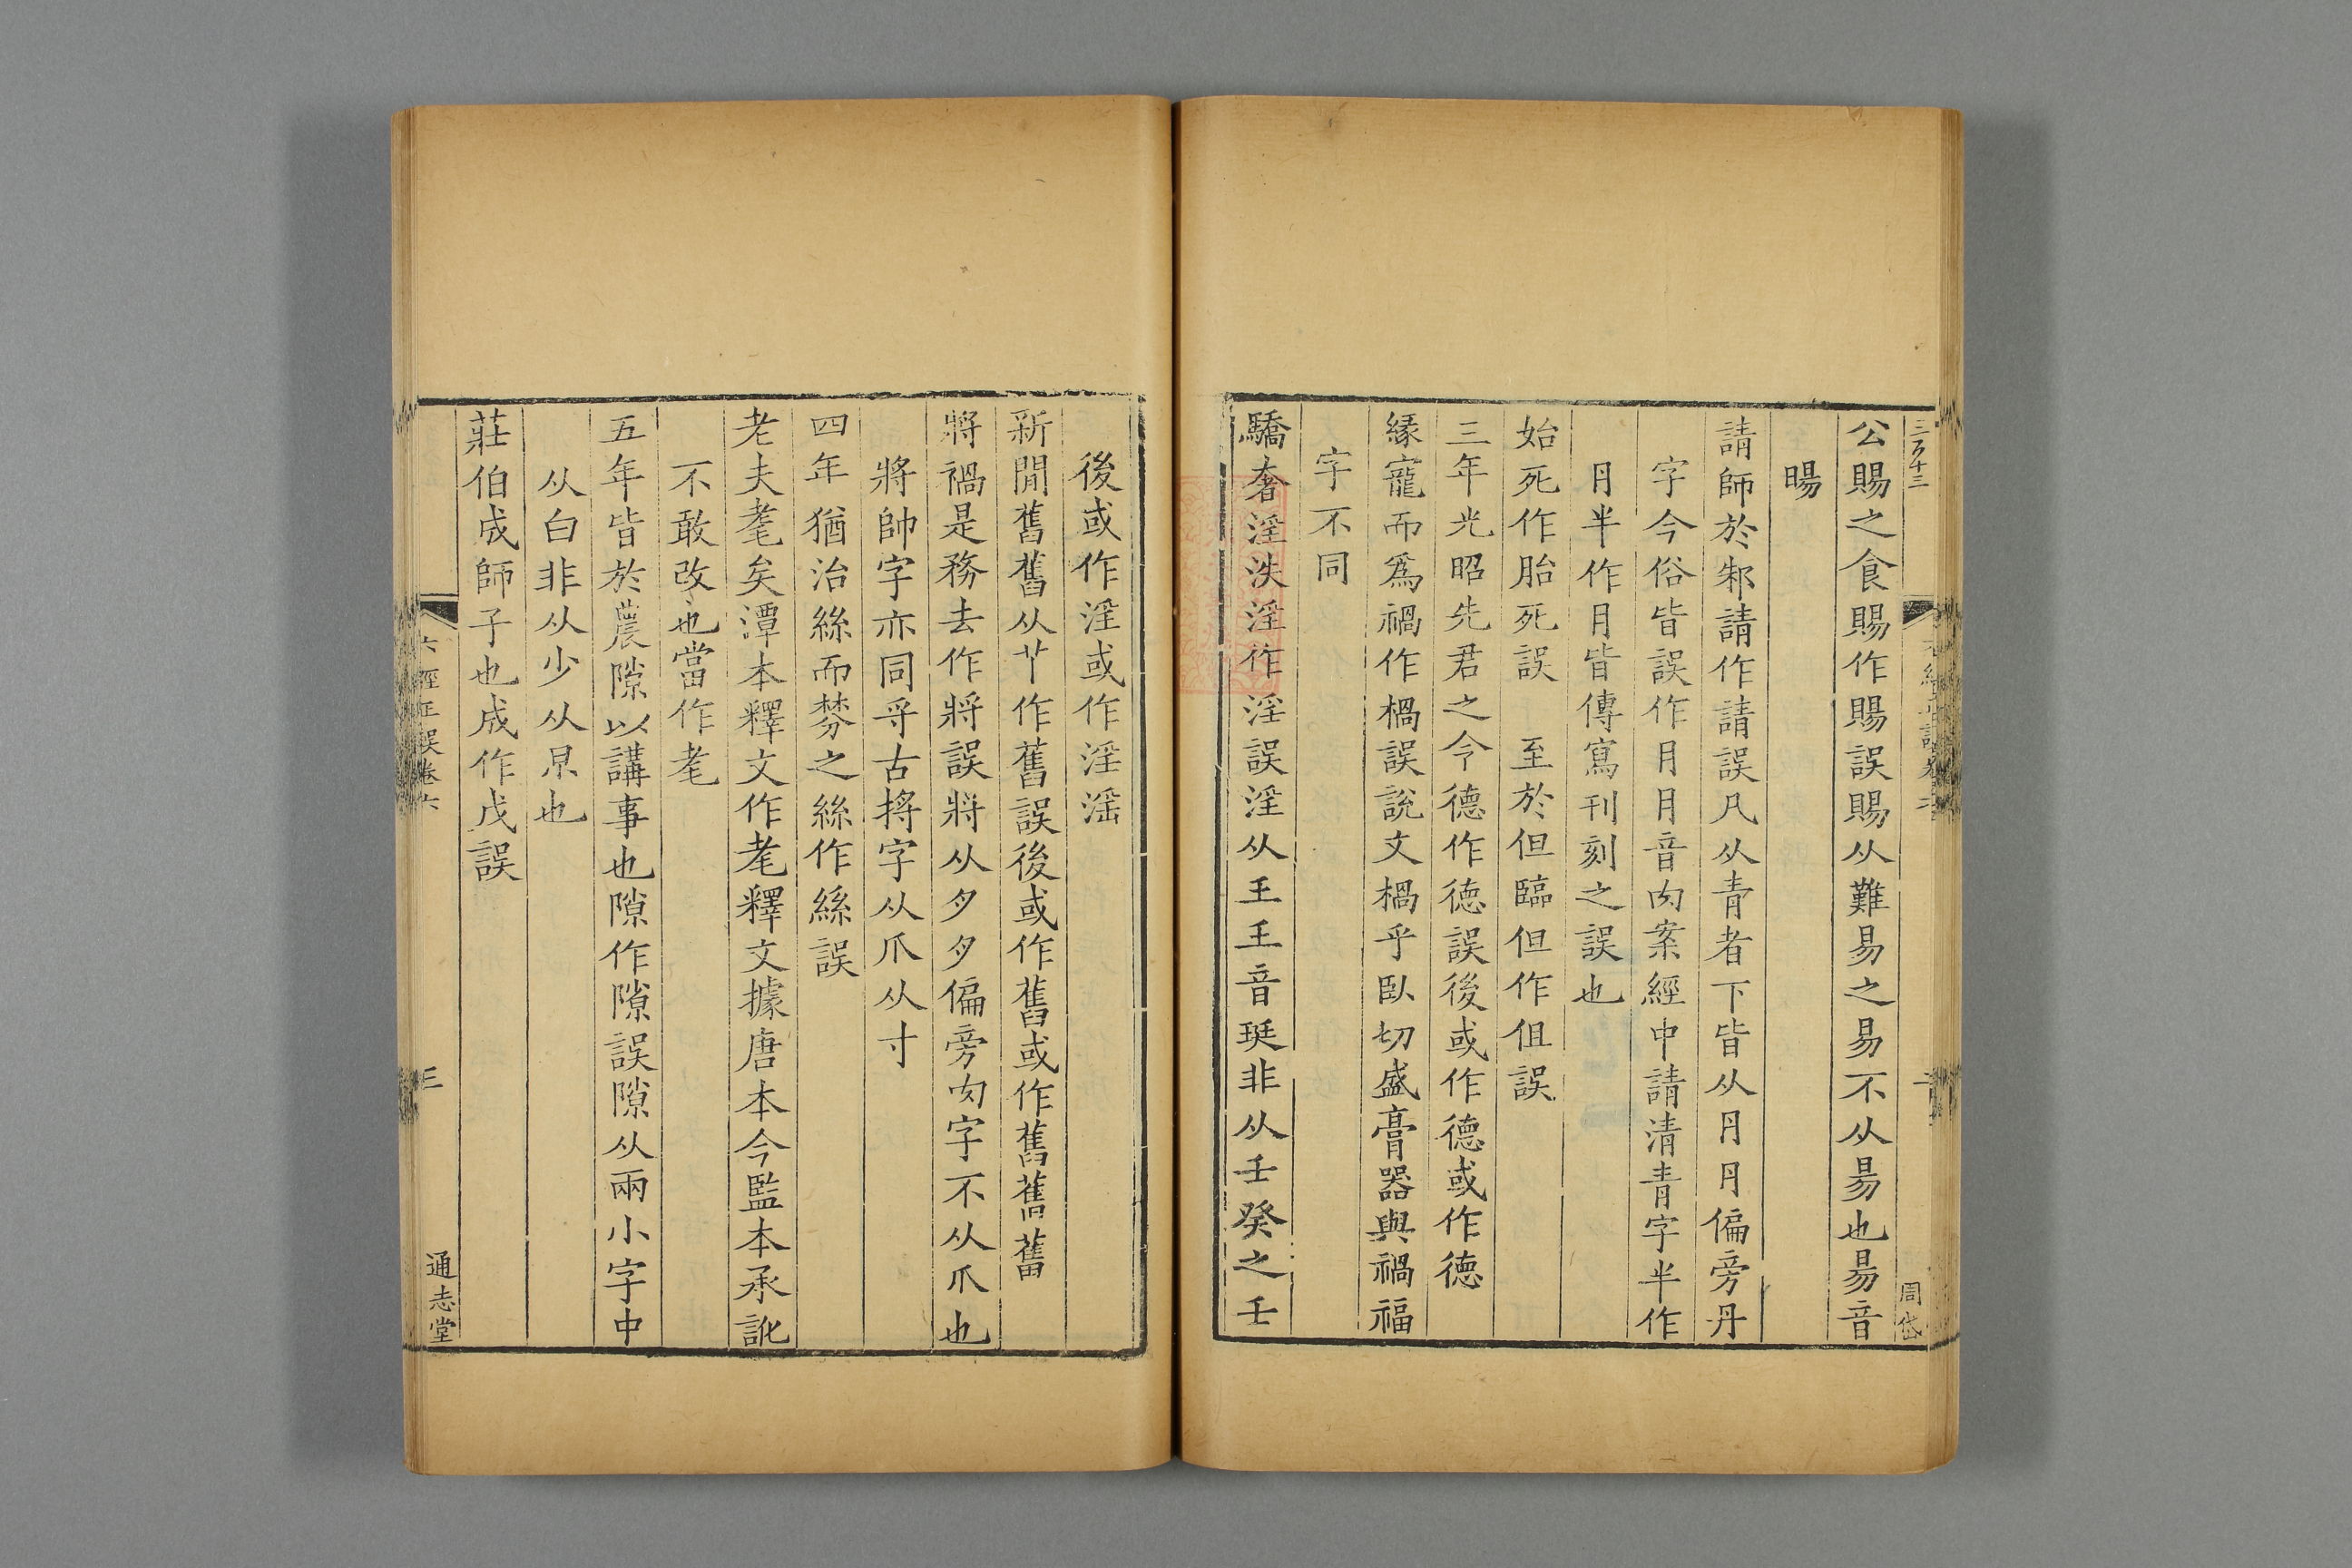 三百十三
公賜之食賜作賜誤賜从難易之易不从昜也昜音
暘
請師於邾請作請誤凡从青者下皆从円円偏旁丹
字今俗皆誤作月月音肉案經中請清青字半作
円半作月皆傳寫刊刻之誤也
始死作胎死誤　至於但臨但作伹誤
三年光昭先君之令德作德誤後或作德或作德
緣寵而爲禍作楇誤說文楇乎臥切盛膏器與禍福
字不同
驕奢淫泆淫作淫誤淫从𡈼𡈼音珽非从壬癸之壬
周岱
後或作淫或作淫滛
新閒舊舊从艹作舊誤後或作舊或作舊舊舊
將禍是務去作將誤將从夕夕偏旁肉字不从爪也
將帥字亦同寽古捋字从爪从寸
四年猶治絲而棼之絲作絲誤
老夫耄矣潭本釋文作耄釋文據唐本今監本承訛
不敢改也當作耄
五年皆於農隙以講事也隙作隙誤隙从兩小字中
从白非从少从㒳也
莊伯成師子也成作戊誤
六經正誤卷六
三
通志堂